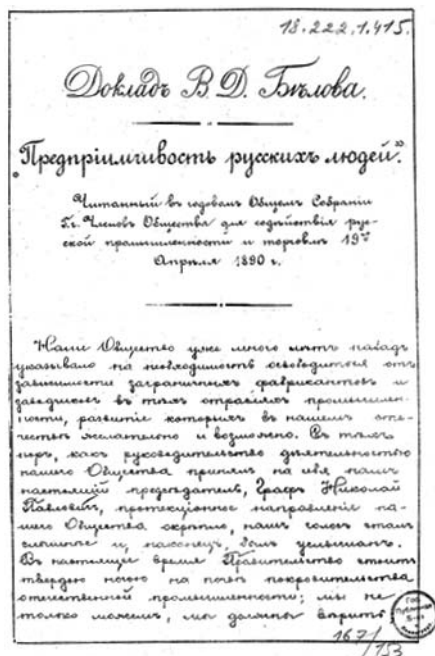 18.222.1.415.
Докладъ В. Д. Бѣлова.
„Предпріимчивость русскихъ людей“.
Читанный въ годовомъ Общемъ Собраніи
Г.г. Членовъ Общества для содѣйствія рус-
ской промышленности и торговлѣ 19го
Апрѣля 1890 г.
Наше Общество уже много лѣтъ назадъ
указывало на необходимость освободиться отъ
зависимости заграничныхъ фабрикантовъ и
заводчиковъ въ тѣхъ отрасляхъ промышлен-
ности, развитіе которыхъ въ нашемъ оте-
чествѣ желательно и возможно. Съ тѣхъ
поръ, какъ руководительство дѣятельностью
нашего Общества принялъ на себя нашъ
настоящій предсѣдатель, Графъ Николай
Павловичъ, протекціонное направленіе на-
шего Общества окрѣпло, нашъ голосъ сталъ
слышнѣе и, наконецъ, былъ услышанъ.
Въ настоящее время Правительство стоитъ
твердою ногою на почвѣ покровительства
отечественной промышленности; мы не
только можемъ, мы должны вѣрить
Гос.
Публичная
Б-ка
167/153